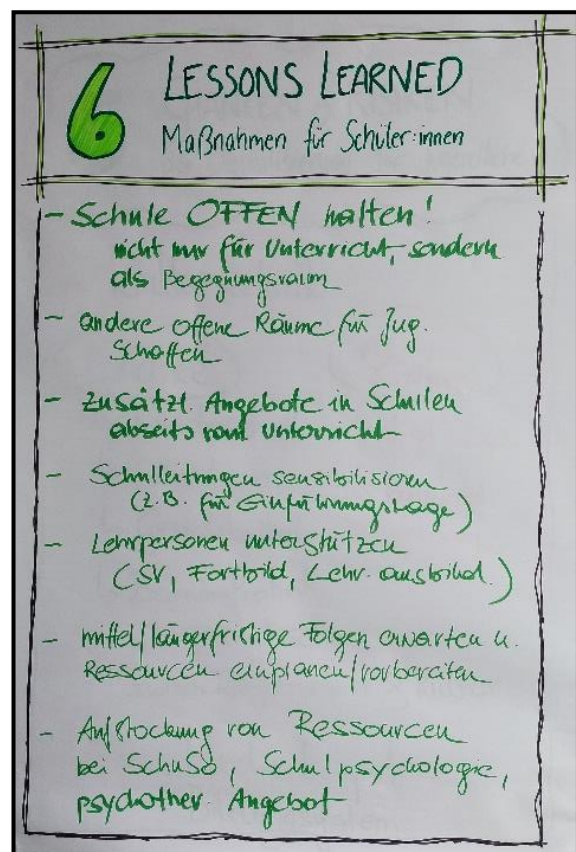 6
LESSONS LEARNED
Maßnahmen für Schüler:innen
- Schule OFFEN halten!
nicht nur für Unterricht, sondern
als Begegnungsraum
- andere offene Räume für Jug.
schaffen
- zusätzl. Angebote in Schulen
abseits vom Unterricht
- Schulleitungen sensibilisieren
(z.B. für Einführungstage)
- Lehrpersonen unterstützen
(SV, Fortbild, Lehr.ausbild.)
- mittel/längerfristige Folgen erwarten u.
Ressourcen einplanen/vorbereiten
- Aufstockung von Ressourcen
bei SchuSo, Schulpsychologie,
psychother. Angebot